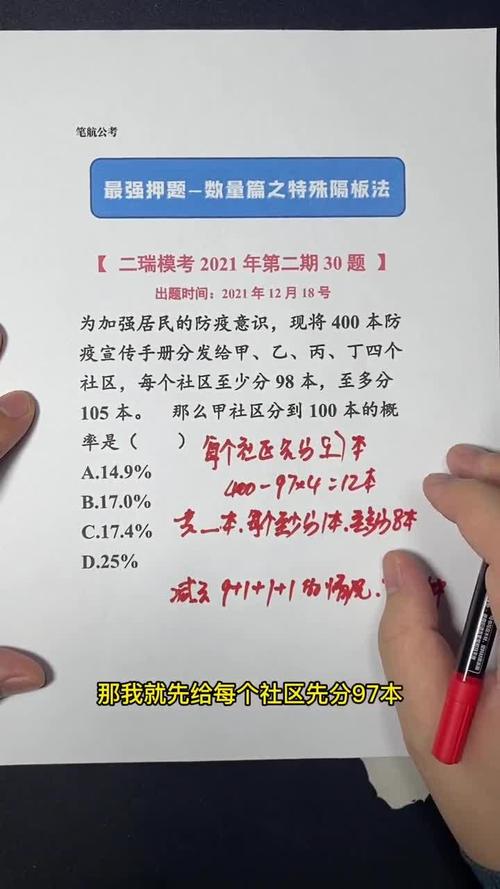 笔航公考
最强押题-数量篇之特殊隔板法
【 二瑞模考 2021 年第二期 30 题 】
出题时间：2021 年 12 月 18 号
为加强居民的防疫意识，现将 400 本防
疫宣传手册分发给甲、乙、丙、丁四个
社区，每个社区至少分 98 本，至多分
105 本。 那么甲社区分到 100 本的概
率是（ ）
每个社区先分 本
A.14.9%
400-97×4=12本
B.17.0%
本.每个至少分1本.至多分8本
C.17.4%
D.25%
减去 9+1+1+1 的情况.
那我就先给每个社区先分97本